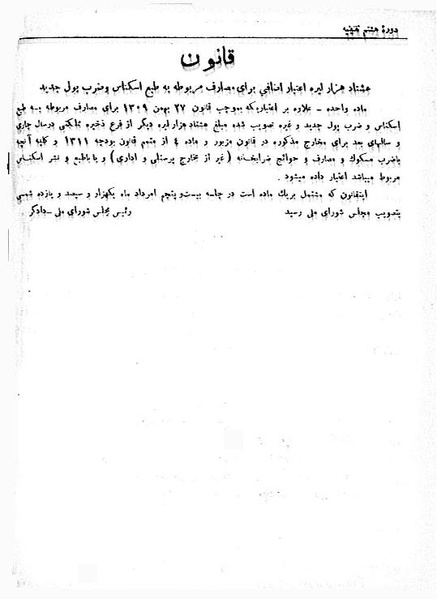 دورهٔ هشتم تقنینیه
قانون
هشتاد هزار لیره اعتبار اضافی برای مصارف مربوطه به طبع اسکناس وضرب پول جدید
ماده واحده – علاوه بر اعتباریکه بموجب قانون ۲۷ بهمن ۱۳۰۹ برای مصارف مربوطه بـه طبع
اسکناس و ضرب پول جدید و غیره تصویب شده مبلغ هشتادهزارلیره دیگر از فرع ذخیره مملکتی درسال جاری
و سالهای بعد برای مخارج مذکوره در قانون مزبور و ماده ٤ از متمم قانون بودجه ۱۳۱۱ و کلیه آنچه
باضرب مسکوک و مصارف و حوائج ضرابخانه (غیر از مخارج پرسنلی و اداری) و یاباطبع و نشر اسکناس
مربوط میباشد اعتبار داده میشود.
اینقانون که مشتمل بریک ماده است در جلسه بیست‌و‌پنجم امرداد ماه یکهزار و سیصد و یازده شمسی
بتصویب مجلس شورای ملی رسید رئیس مجلس شورای ملی –دادگر